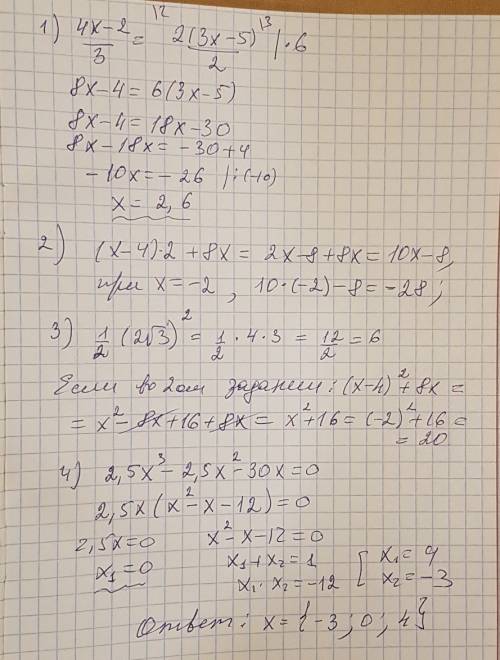 1) (4x-2)/3 = 2(3x-5)/2 |·6
8x-4=6(3x-5)
8x-4=18x-30
8x-18x=-30+4
-10x=-26 |:(-10)
x=2,6
2) (x-4)·2+8x=2x-8+8x=10x-8,
при x=-2, 10·(-2)-8=-28;
3) 1/2 (2√3)²=1/2·4·3=12/2=6
Если во 2ом задании: (x-4)²+8x=
=x²-8x+16+8x=x²+16=(-2)²+16=
=20
4) 2,5x³-2,5x²-30x=0
2,5x(x²-x-12)=0
2,5x=0 x²-x-12=0
x₁=0 x₁+x₂=1 [ x₁=4
x₁·x₂=-12 x₂=-3
Ответ: x={-3; 0; 4}